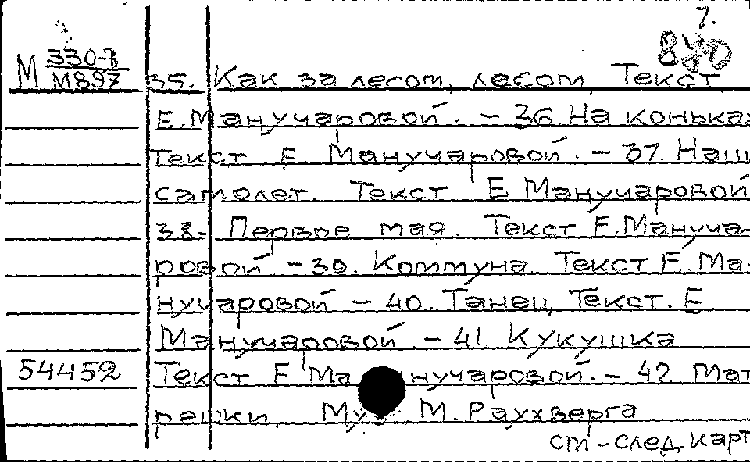 7.
М 330-3
М897
35. Как за лесом, лесом Текст
Е.Манучаровой. - 36 На конька
Текст Е Манучаровой. - 37. Наш
самолет. Текст Е Манучаровой
38. Первое мая. Текст Е.Мануча-
ровой - 39. Коммуна. Текст Е. Ма-
нучаровой - 40. Танец Текст. Е
Манучаровой. - 41 Кукушка
54452 Текст Е Манучаровой. - 42 Мат
решки Муз М. Раухверга
см-след. карт